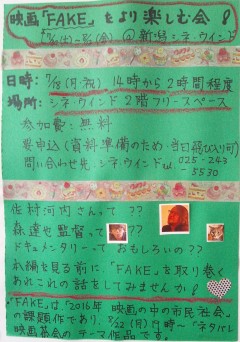 映画「FAKE」をより楽しむ会！
7/16(土)～8/5(金) @新潟シネ・ウインド
日時：7/18(月・祝) 14時から2時間程度
場所：シネ・ウインド2階フリースペース
参加費：無料
要申込(資料準備のため・当日飛び入り可)
問い合わせ先：シネ・ウインド tel. 025-243
-5530
佐村河内さんって??
森達也監督って??
ドキュメンタリーって おもしろいの??
本編を見る前に、「FAKE」を取り巻く
あれこれの話をしてみませんか!
「FAKE」は、「2016年 映画の中の市民社会」
の課題作であり、8/22(月)19時～「ネタバレ
映画茶会のテーマ作品です。